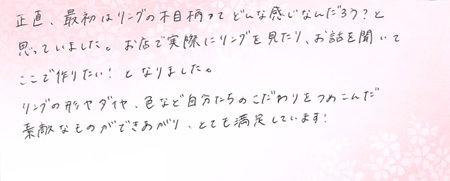 正直、最初はリングの木目柄ってどんな感じなんだろう？と
思っていました。お店で実際にリングを見たり、お話を聞いて
ここで作りたい！となりました。
リングの形やダイヤ、色など自分たちのこだわりをつめこんだ
素敵なものができあがり、とても満足しています！